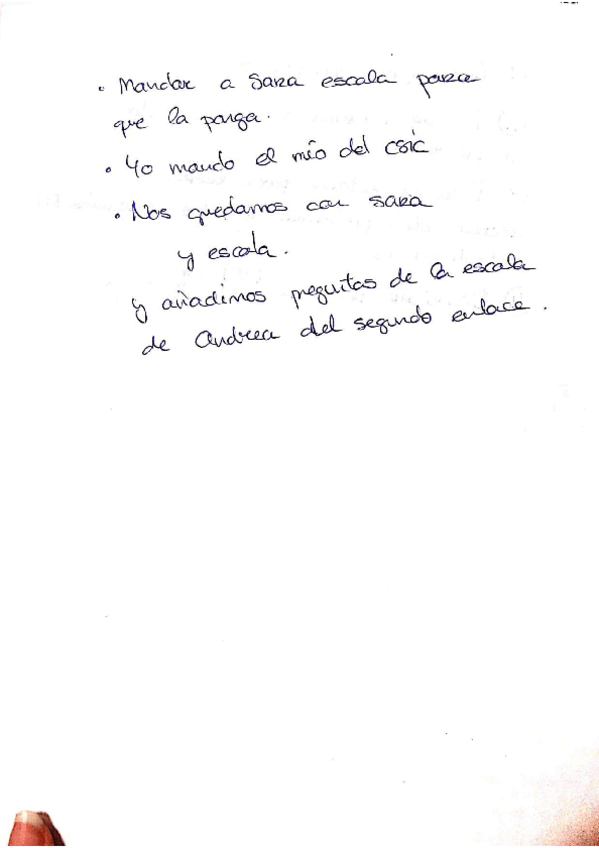 • Mandar a Sara escala para
que la ponga.
• Yo mando el mío del CSIC
• Nos quedamos con Sara
y escala.
y añadimos preguitas de la escala
de Andrea del segundo enlace.